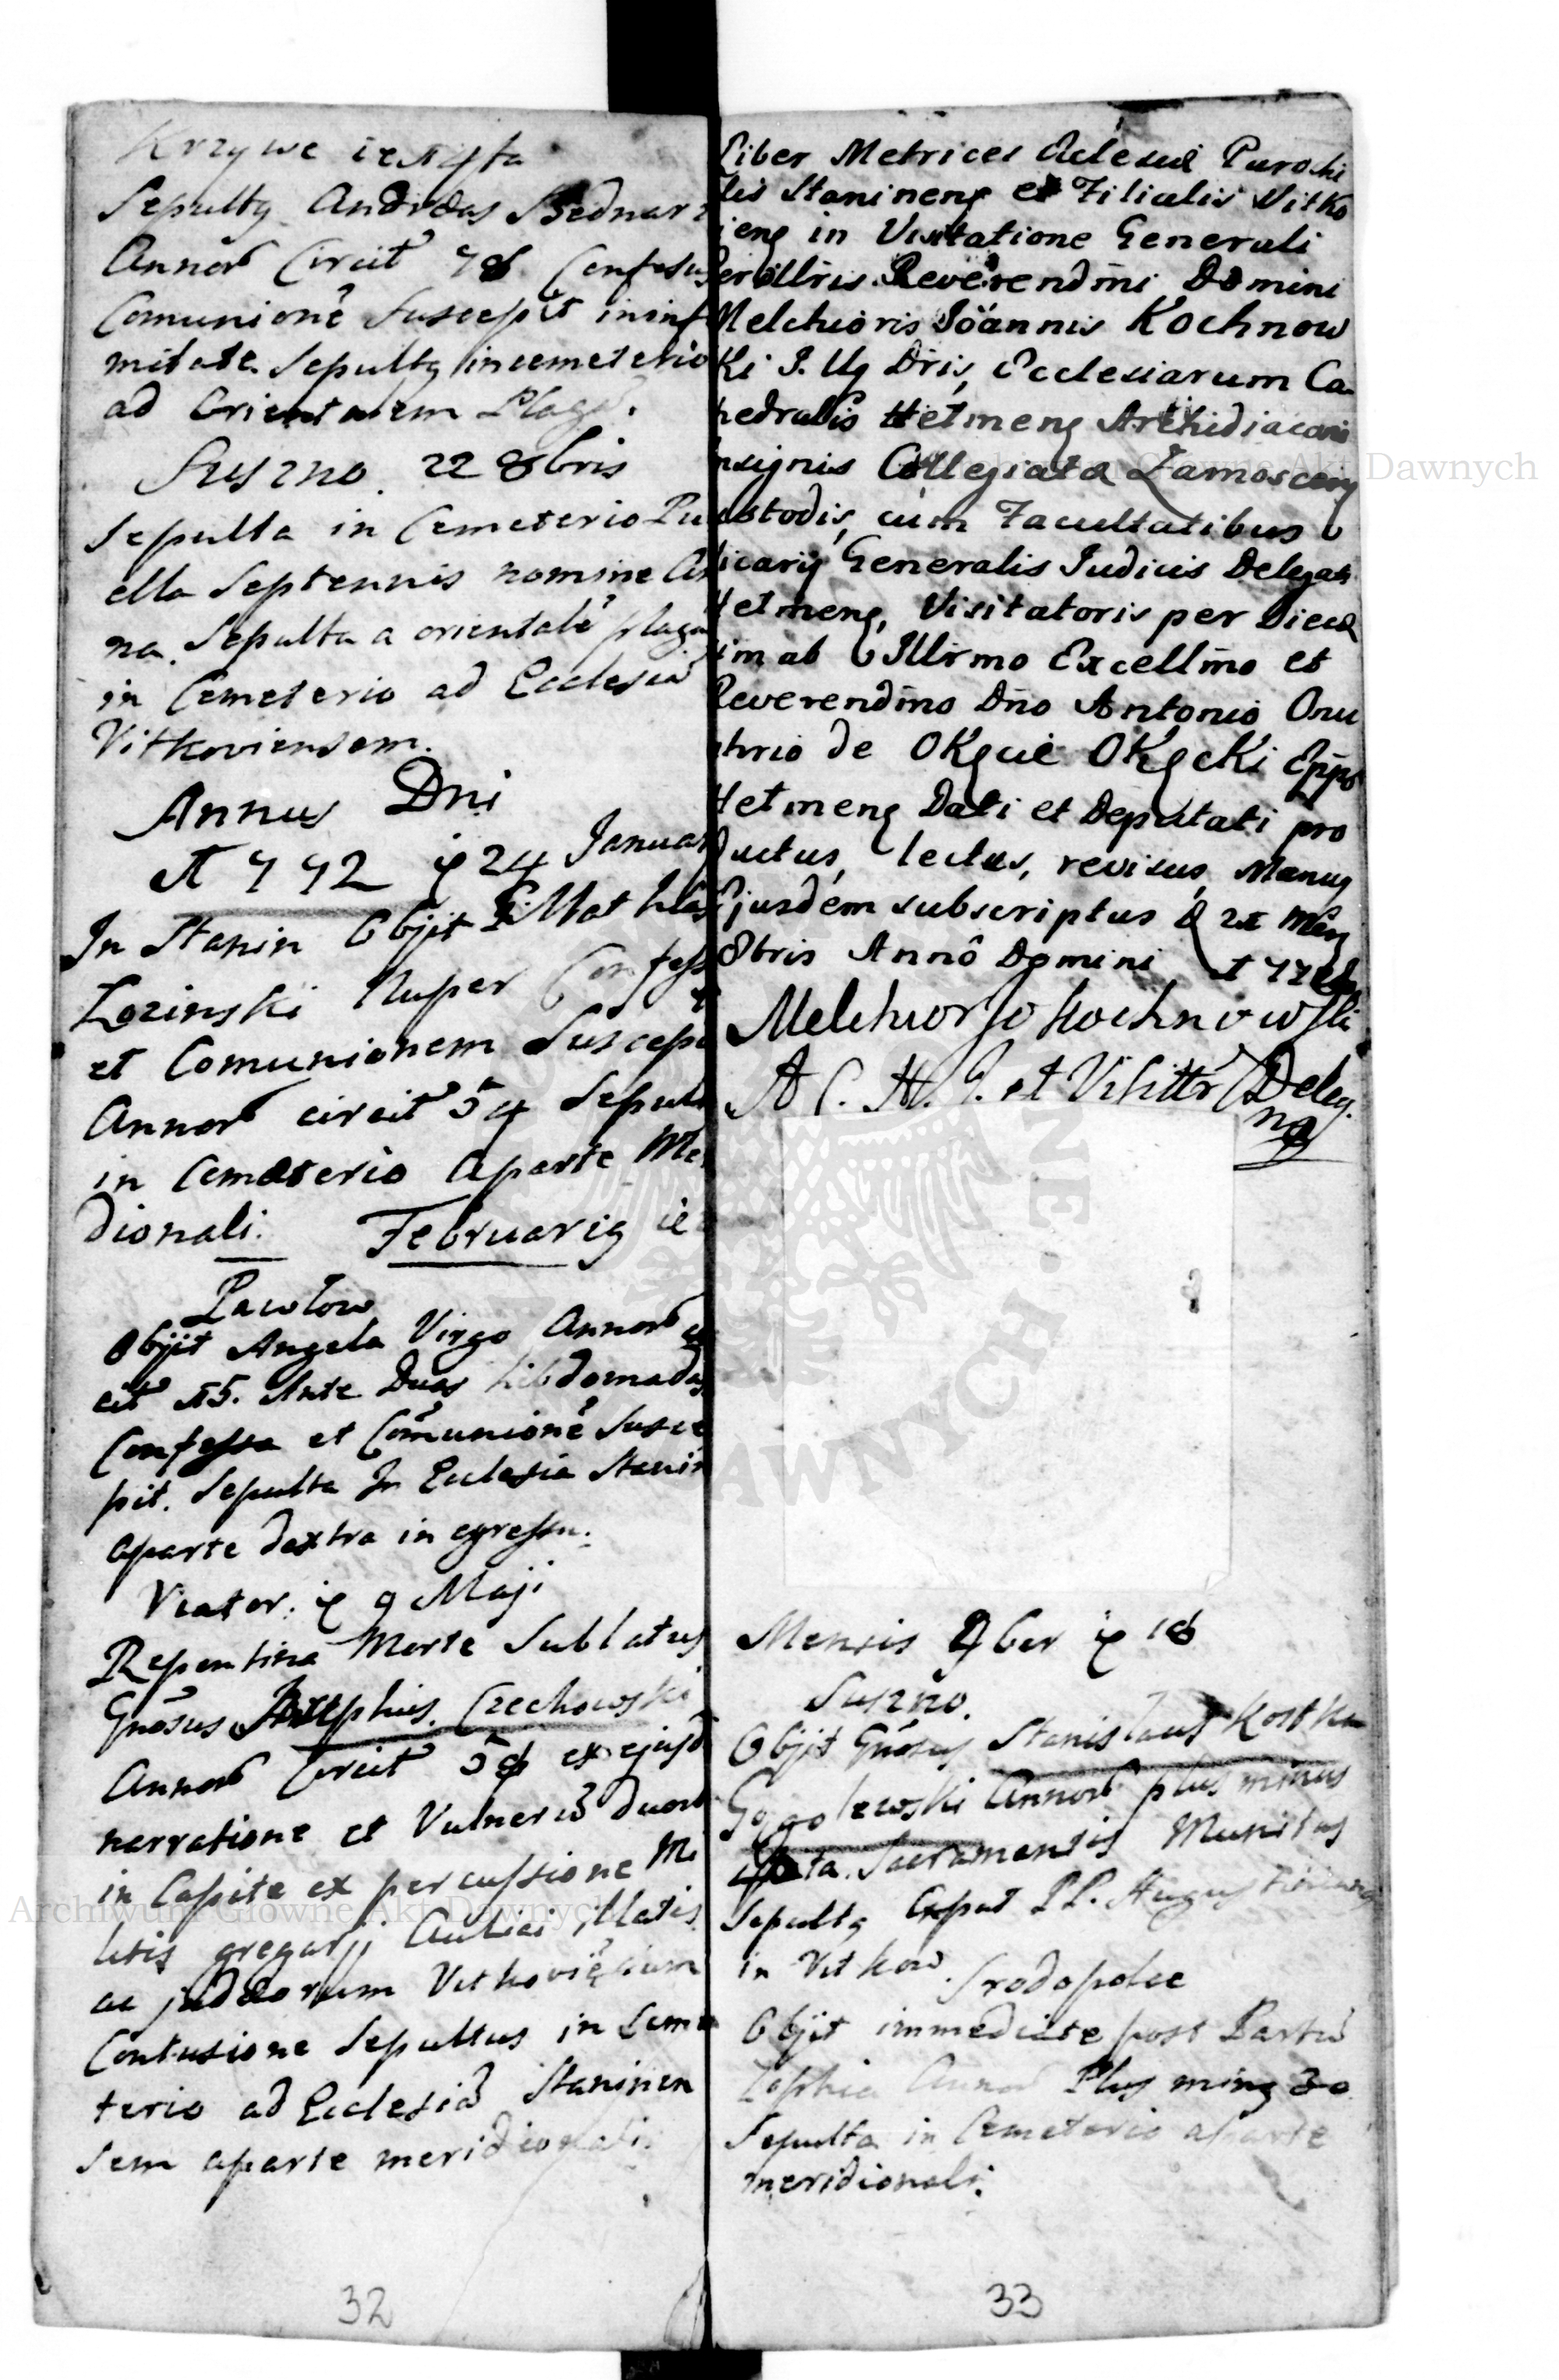 Krzywe ie
Sepultg Andreas Bednar
Annor Circit 78 Confesus
Comunionē Suscepit in inf
mitate Sepultg in cemeterio
ad Orientalem Plagā.
Suszno. 22 8bris
Sepulta in Cemeterio Pu
ella Septennis nomine An
na. Sepulta a orientalē plagā
in Cemeterio ad Ecclesiā
Vitkoviensem.
Annus Dni
1772 ie 24 Januar
In Stanin Obijt G. Mathias
Lozinski Nuper Confess
et Comunionem Suscepi
Annor circit 54 Sepul
in Cemeterio aparte Me
dionali. Februarig ie
Pawlow
Obijt Angela Virgo Annor
cit 15. Ante Duas hibdomadas
Confessa et Comunionē Susce
pit. Sepulta In Ecclesia Stanin
aparte dextra in egressu.
Viator. ie 9 Maji
Repentina Morte Sublatus
Gnōsus Josephus Czechowski
Annor Circit ex ejusd
narratione et Vulnerū duor
in Capite ex percussione Mi
litis gregarij Aulici illatis
ac judæorum Vitkoviēsium
Contusione Sepultus in Cem
terio ad Ecclesiā Staninen
sem aparte meridionali.
32
Liber Metrices Aclesiæ Parochi
lis Stanineng et Filialis Vitko
ieng in Visitatione Generali
Perillris Reverendmi Domini
Melchioris Joannis Kochnow
ki J. Ug Dris, Ecclesiarum Ca
hedralis Hetmeng Archidiaconi
nsignis Collegiatæ Zamosceng
ustodis, cum Facultatibus
icarij Generalis Judicis Delegati
Hetmeng, Visitatoris per Diece
im ab Illrmo Excellmo et
Reverendmo Dno Antonio Onu
phrio de Okęcie Okęcki Eppo
Hetmeng Dati et Deputati pro
ductus, lectus, revisus, Manug
Ejusdem subscriptus D 21 Meng
8bris Anno Domini 177
Melchior Jo Kochnowski
A C. H. J. et Visittr Deleg.
Mensis 9ber ie 18
Suszno.
Obijt Gnōsus Stanislaus Kostka
Gogolewski Annor plus minus
Sacramentis Munitus
Sepultg Apud PP. Augustinianos
in Vitkow. Srodopolce
Obijt immediate post Partū
Zophia Annor Plus ming 30
Sepulta in Cemeterio aparte
meridionali.
33
Archiwum Główne Akt Dawnych
Archiwum Główne Akt Dawnych